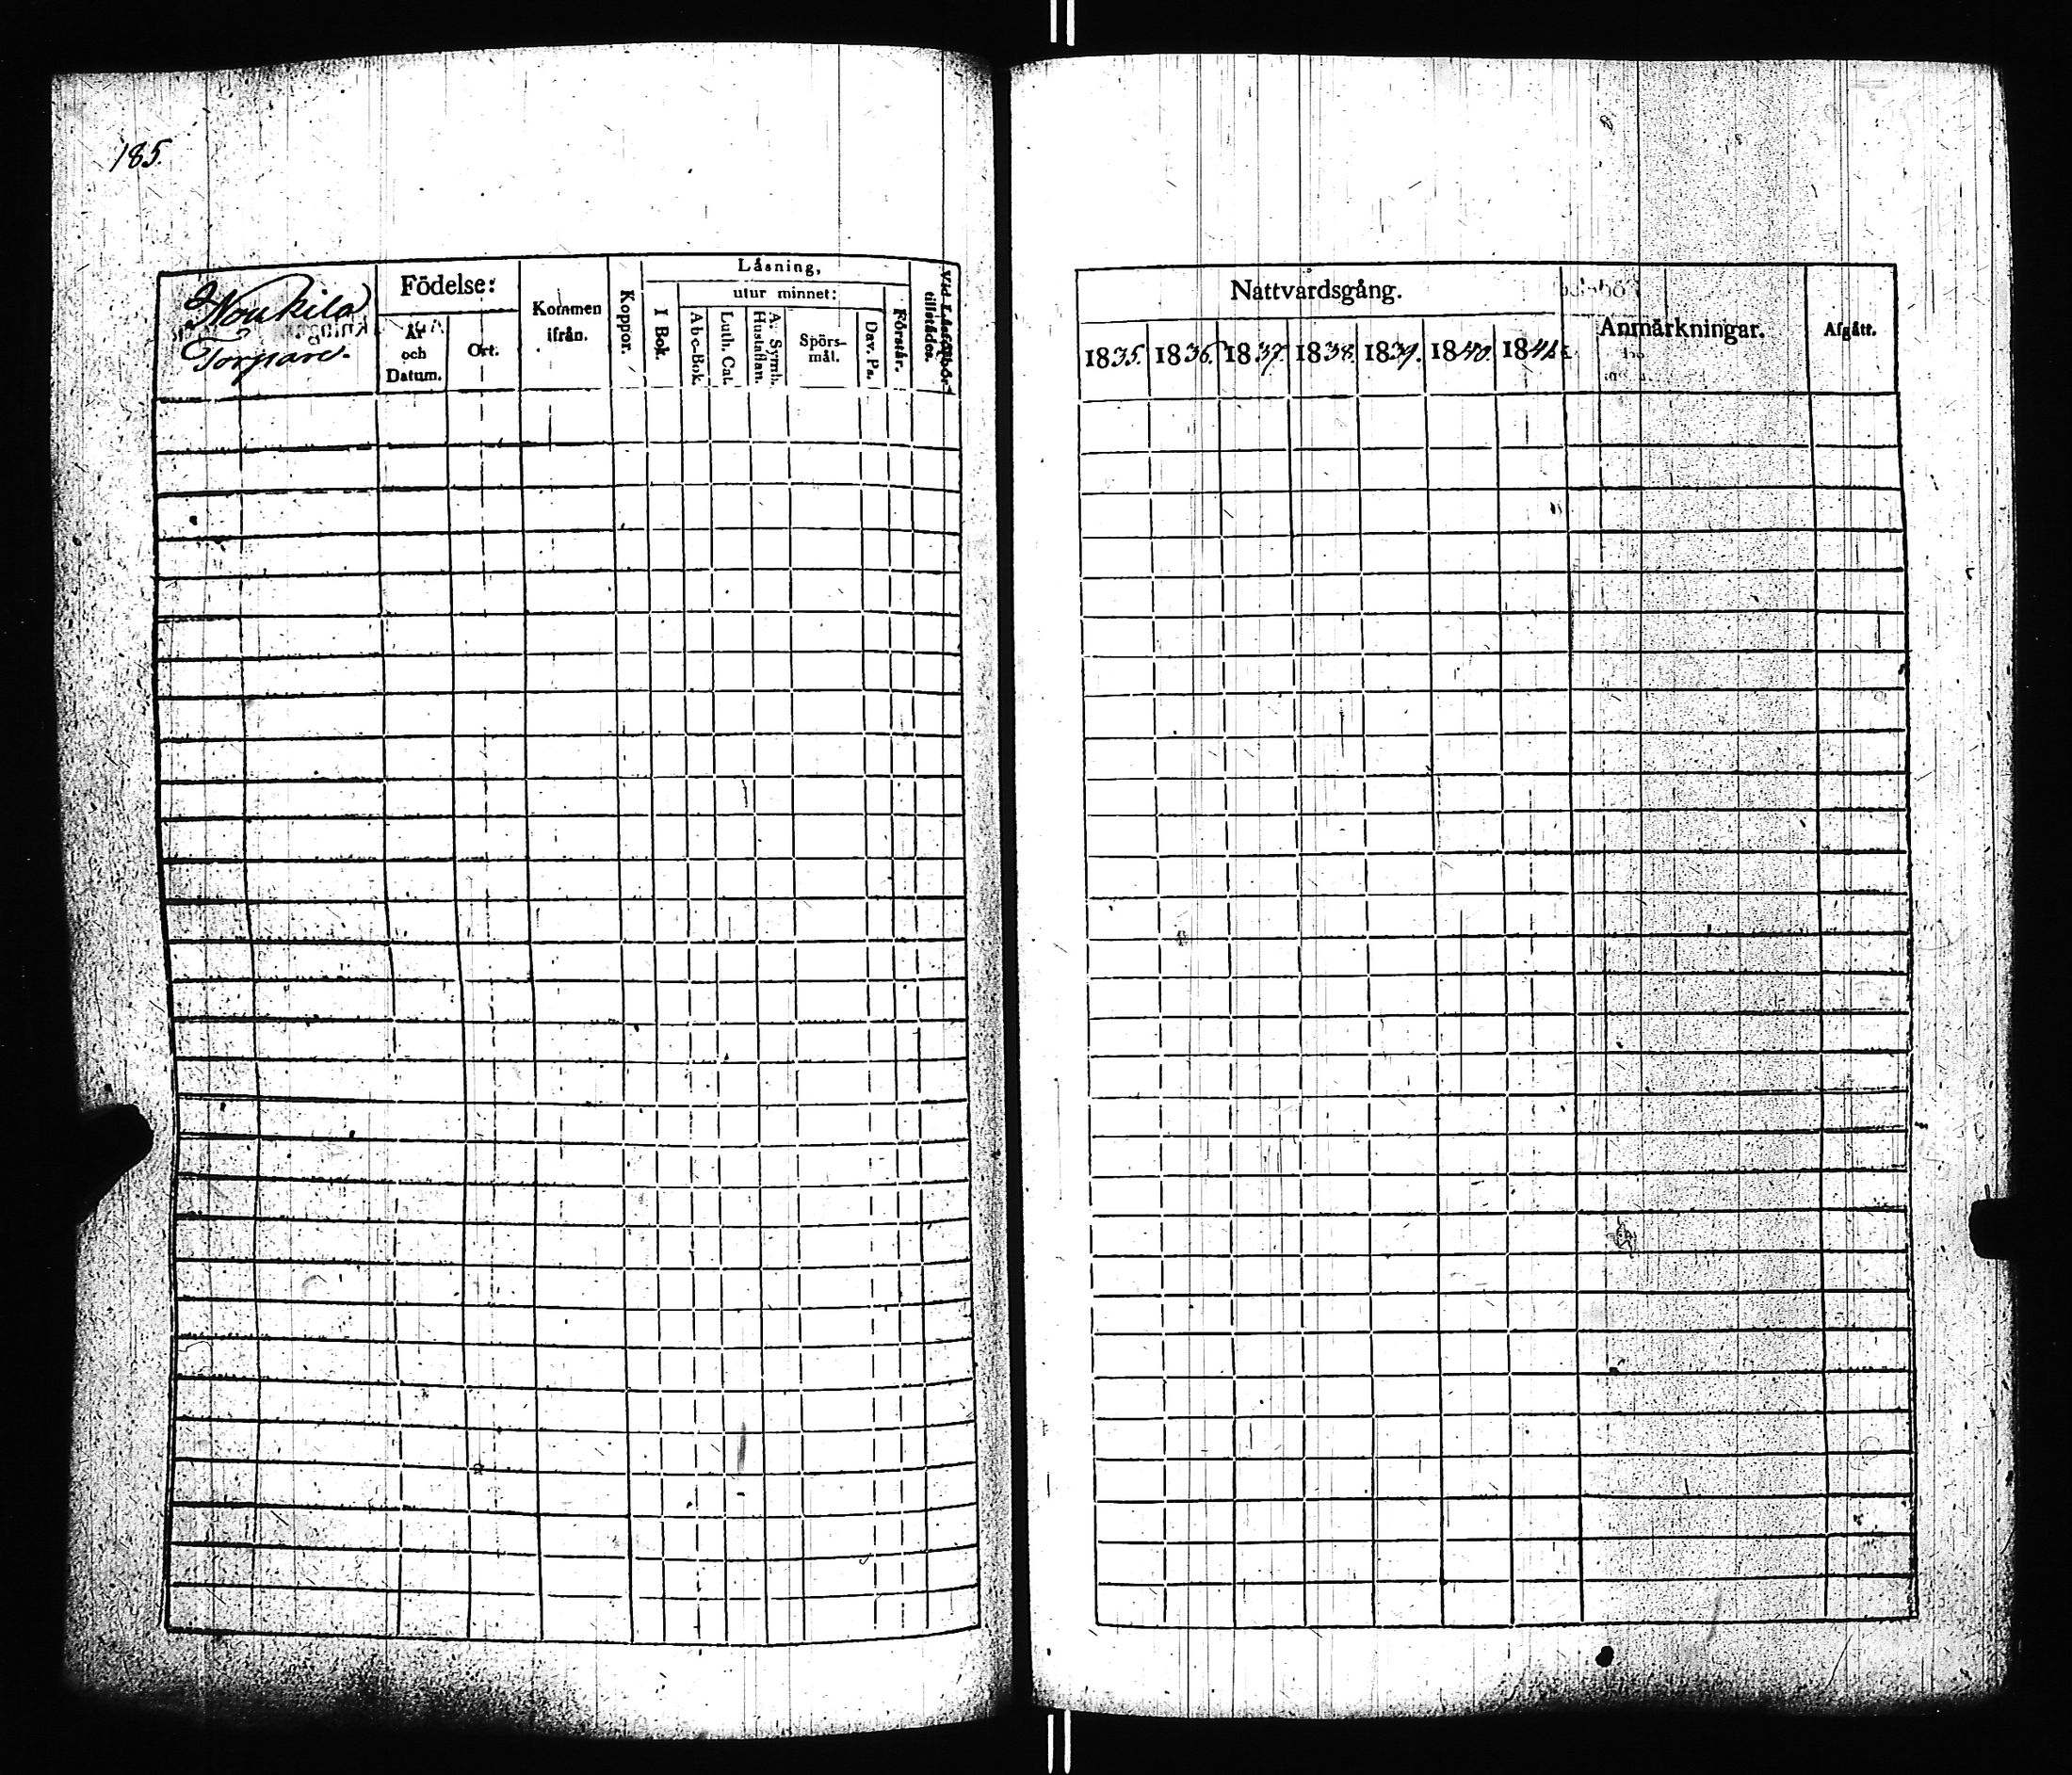 185.
Noukila
Torpare.
Födelse:
År och Datum.
Ort.
Kommen ifrån.
Koppor.
Låsning,
I Bok.
utur minnet:
Abc-Bok.
Luth. Cat.
A. Symb. Hustaflan.
Spörs-mål.
Dav. Ps.
Förstår.
Vid Läseförhör tillstådes.
Nattvardsgång.
1835.
1836.
1837.
1838.
1839.
1840.
1841.
Anmärkningar.
Afgått.